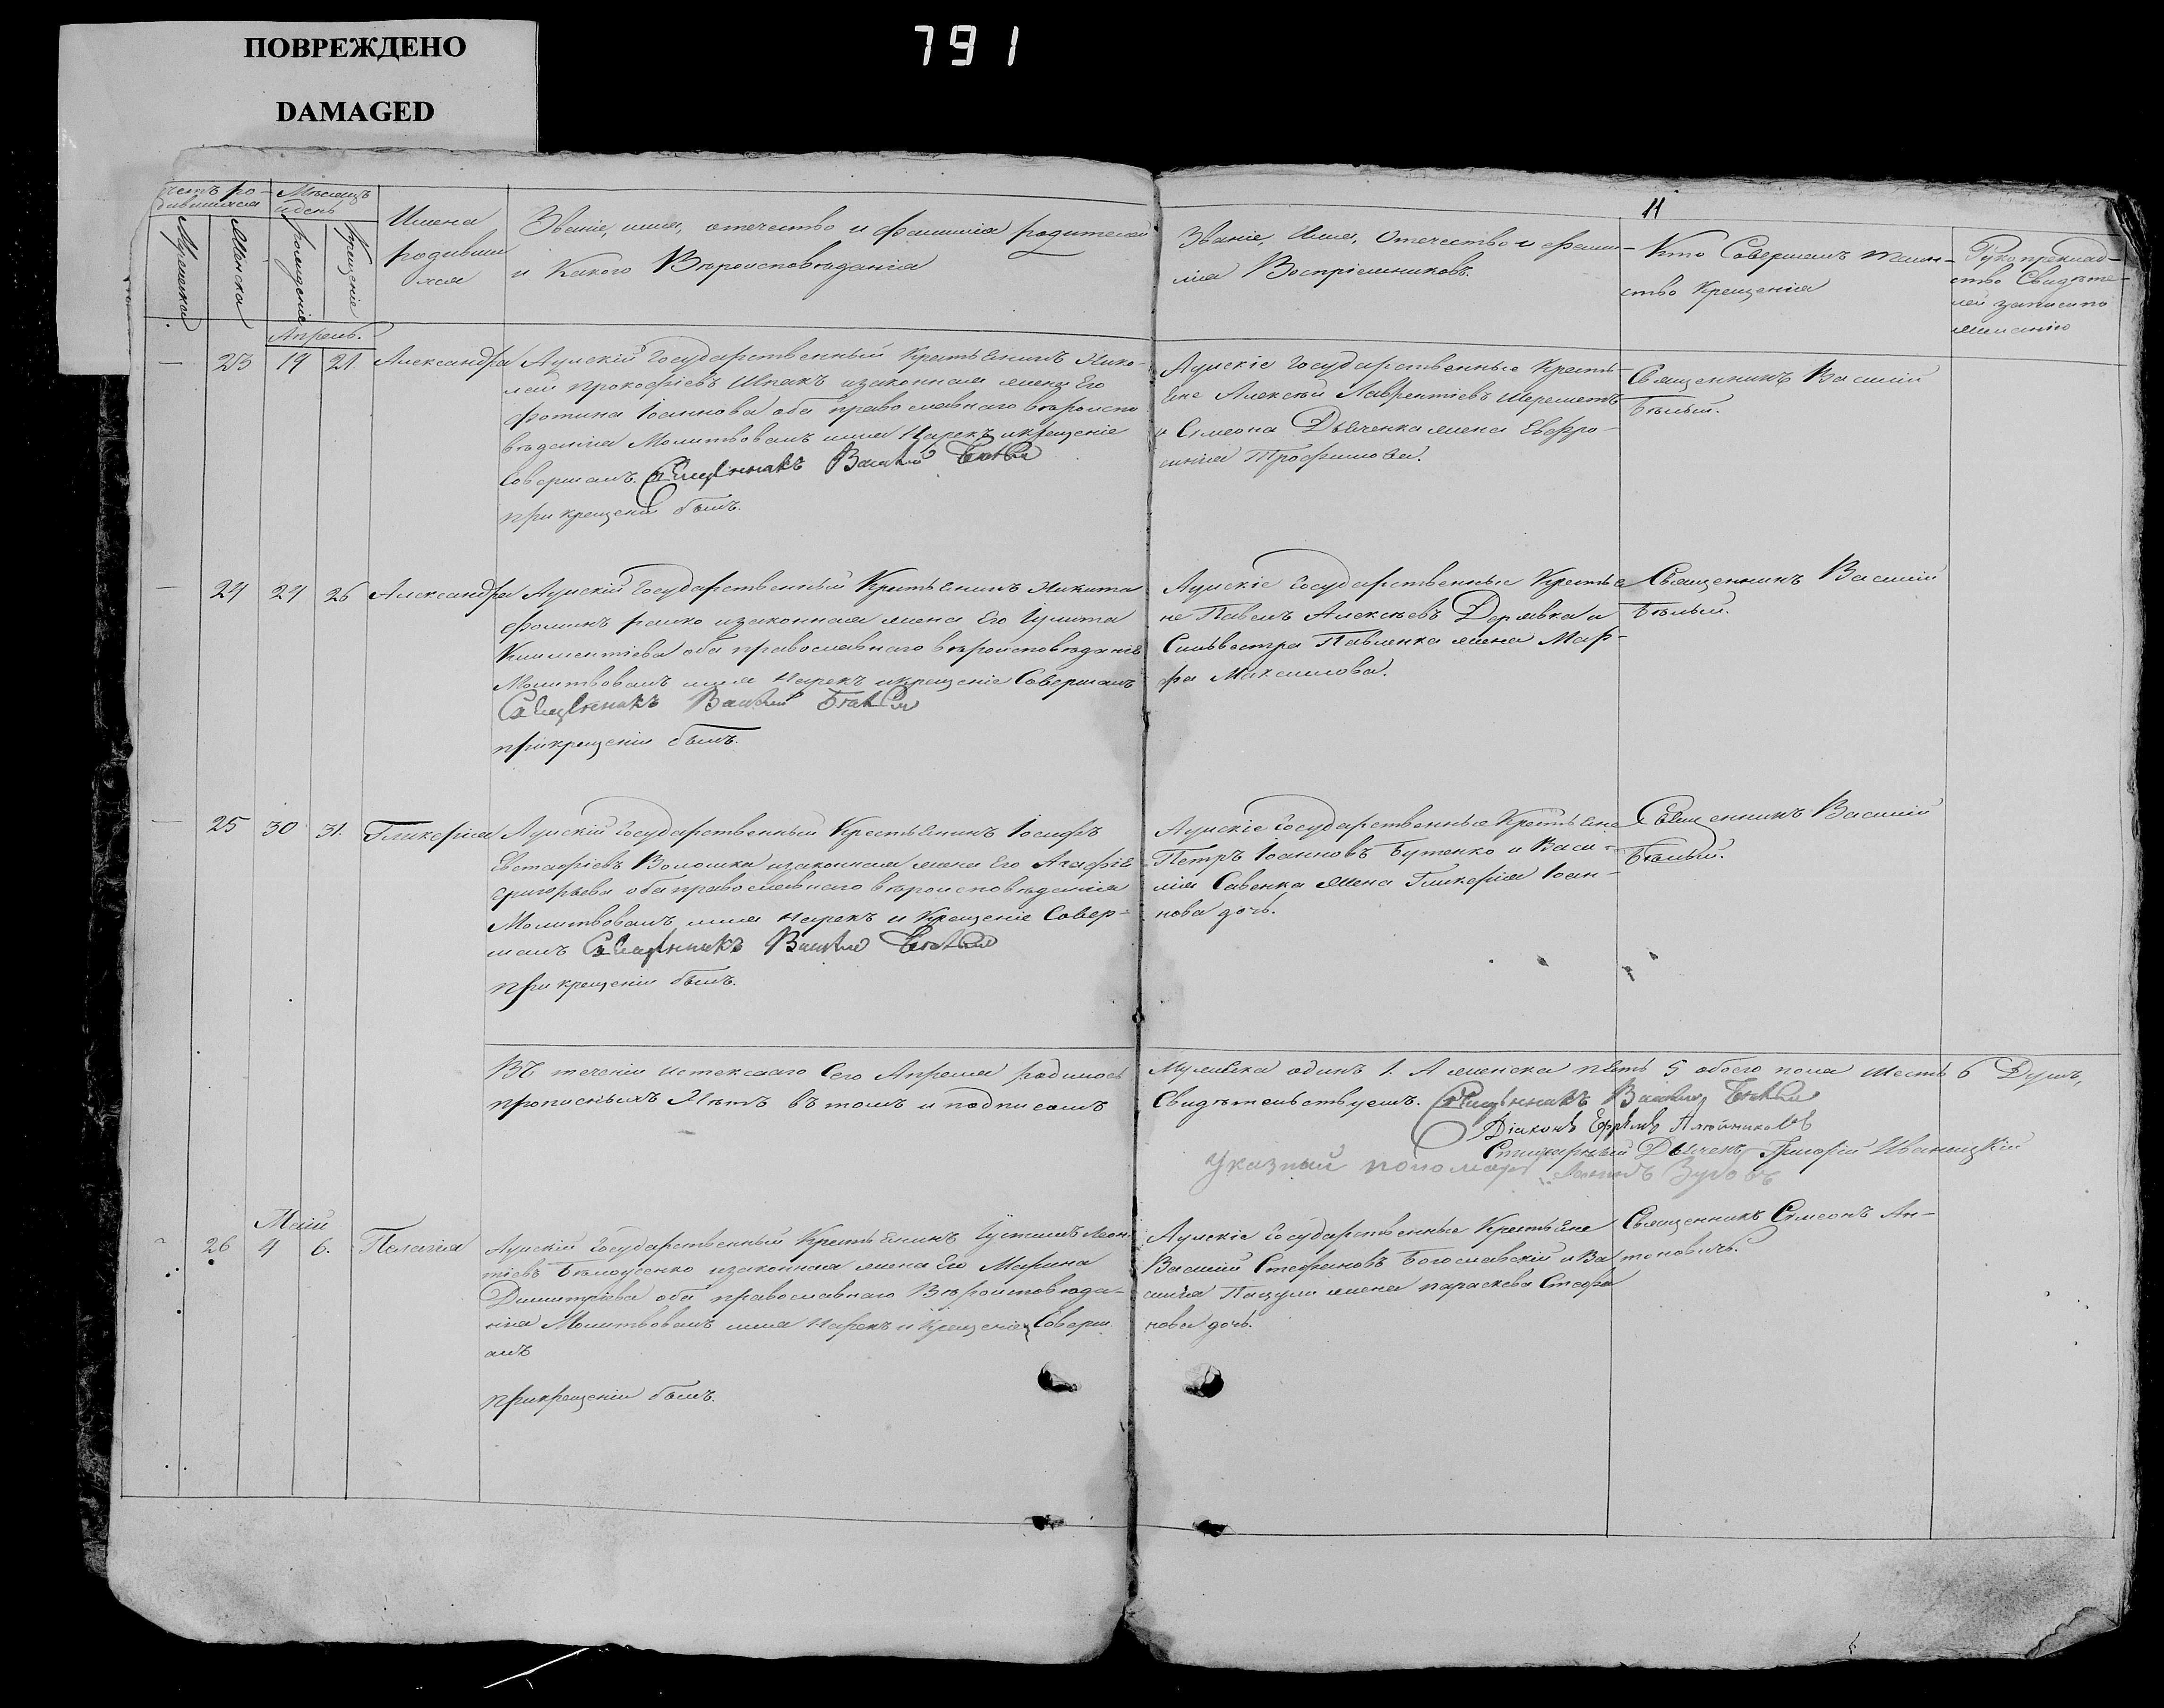 ПОВРЕЖДЕНО
DAMAGED
791
11
Мѣсяцъ
и день
Мужеска
Женска
рожденіе
крещеніе
Имена
родивши
хся
Званіе, имя, отечество и фамилія родителей
и Какого Вѣроисповѣданія
Званіе, Имя, Отечество и фами-
лія Воспріемниковъ.
Кто Совершалъ таин-
ство Крещенія
Рукоприклад-
ство Свидѣте-
лей записи по
желанію
Апрель.
— 23 19 21. Александра
Аумскій Государственный Крестьянинъ Нико-
лай Прокофіевъ Шпакъ изаконная жена Его
Фотина Іоаннова оба православнаго вѣроиспо
вѣданія Молитвовалъ имя Нарекъ икрещеніе
Совершалъ. Священникъ Василій Бѣлый
при крещеніи былъ.
Аумскіе Государственные Кресть-
яне Алексѣй Лаврентіевъ Шереметъ
и Симеона Дьяченка жена Евфро-
синія Трофимова.
Священникъ Василій
Бѣлый.
— 24 24 26 Александра
Аумскій Государственный Крестьянинъ Никита
Фоминъ рашко изаконная жена Его Іулита
Климентіева оба православнаго вѣроисповѣданіе
Молитвовалъ имя Нарекъ икрещеніе Совершалъ
Священникъ Василій Бѣлый
прикрещеніи былъ.
Аумскіе Государственные Крестья
не Павелъ Алексѣевъ Держвка и
Сильвестра Павленка жена Мар-
фа Максимова.
Священникъ Василій
Бѣлый.
— 25 30 31. Гликерія
Аумскій Государственный Крестьянинъ Іосифъ
Евстафіевъ Волошка изаконная жена Его Агафіе
Григорьева оба православнаго вѣроисповѣданія
Молитвовалъ имя Нарекъ и Крещеніе Совер-
шалъ Священникъ Василій Бѣлый
при крещеніи былъ.
Аумскіе Государственные Крестьяне
Петръ Іоанновъ Бутенко и Васи-
лія Савенка жена Гликерія Іоан-
нова дочь.
Священникъ Василій
Бѣлый.
Въ теченіи истекшаго Сего Апреля родилось
Мужеска одинъ 1. А женска пять 5 обоего пола шесть 6 Душъ,
прописныхъ Нѣтъ въ томъ и подписомъ
Свидѣтельствуемъ. Священникъ Василій Бѣлый
Діаконъ Ефремъ
Стихарный Дьячекъ Григорій Иваницкій
Указный пономарь Зубовъ
Маіи
26 4 6. Пелагія
Аумскій Государственный Крестьянинъ Іустинъ Леон-
тіевъ Бѣлоусенко изаконная жена Его Марина
Димитріева оба православнаго Вѣроисповѣда-
нія Молитвовалъ имя Нарекъ и Крещеніе Соверш.
алъ
прикрещеніи былъ.
Аумскіе Государственные Крестьяне
Василій Стефановъ Богославскій и Ва
силія Пацули жена параскева Стефа
нова дочь.
Священникъ Симеонъ Ан-
тоновичъ.